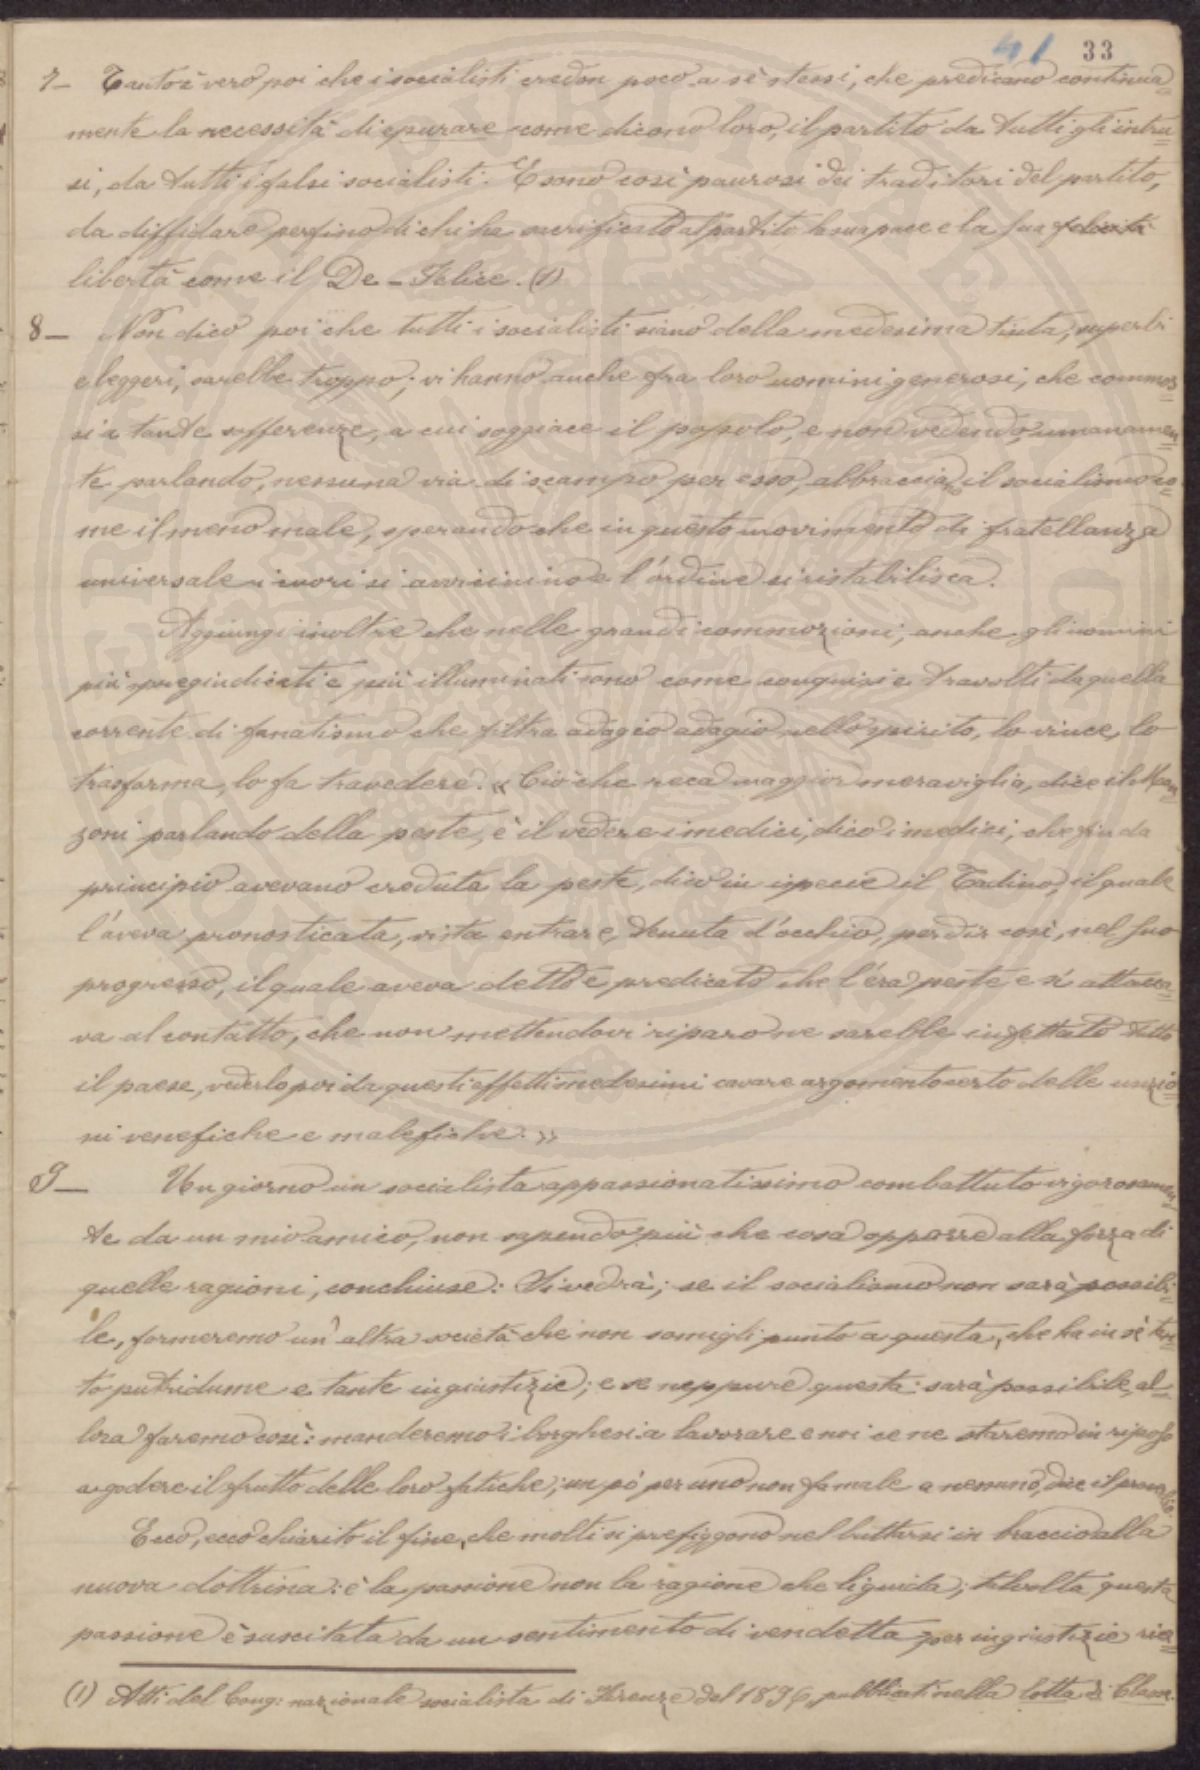 41 33
7_ Tanto è vero poi che i socialisti credon poco a sè stessi, che predicano continua=
mente la necessità di epurare come dicono loro, il partito da tutti gli intru=
si, da tutti i falsi socialisti. E sono così paurosi dei traditori del partito,
da diffidare perfino di chi ha sacrificato al partito la sua pace e la sua felicità
libertà come il De-Felice. (1)
8_ Non dico poi che tutti i socialisti siano della medesima tinta, superbi
e leggeri, sarebbe troppo; vi hanno anche fra loro uomini generosi, che commos=
si a tante sofferenze, a cui soggiace il popolo, e non vedendo, umanamen=
te parlando, nessuna via di scampo per esso, abbracciano il socialismo co=
me il meno male, sperando che in questo movimento di fratellanza
universale i cuori si avvicinino e l'ordine si ristabilisca.
Aggiungi inoltre che nelle grandi commozioni, anche gli uomini
più spregiudicati e più illuminati sono come conquisi e travolti da quella
corrente di fanatismo che filtra adagio adagio nello spirito, lo vince, lo
trasforma, lo fa travedere. « Ciò che reca maggior meraviglia, dice il Man=
zoni parlando della peste, è il vedere i medici, dico i medici, che fin da
principio avevano creduta la peste, dico in ispecie il Tadino, il quale
l'aveva pronosticata, vista entrare, tenuta d'occhio, per dir così, nel suo
progresso, il quale aveva detto e predicato che l'era peste e s'attacca=
va al contatto, che non mettendovi riparo ne sarebbe infettato tutto
il paese, vederlo poi da questi effetti medesimi cavare argomento certo delle unzio=
ni venefiche e malefiche. »
9_ Un giorno un socialista appassionatissimo combattuto vigorosamen=
te da un mio amico, non sapendo più che cosa opporre alla forza di
quelle ragioni, conchiuse: Si vedrà; se il socialismo non sarà possibi=
le, formeremo un'altra società che non somigli punto a questa, che ha in sè tan=
to putridume e tante ingiustizie; e se neppure questa sarà possibile, al=
lora faremo così: manderemo i borghesi a lavorare e noi ce ne staremo in riposo
a godere il frutto delle loro fatiche; un pò per uno non fa male a nessuno, dice il proverbio.
Ecco, ecco chiarito il fine, che molti si prefiggono nel buttarsi in braccio alla
nuova dottrina: è la passione non la ragione che li guida; talvolta questa
passione è suscitata da un sentimento di vendetta per ingiustizie rice=
(1) Atti del Cong: nazionale socialista di Firenze del 1896, pubblicati nella lotta di Classe.